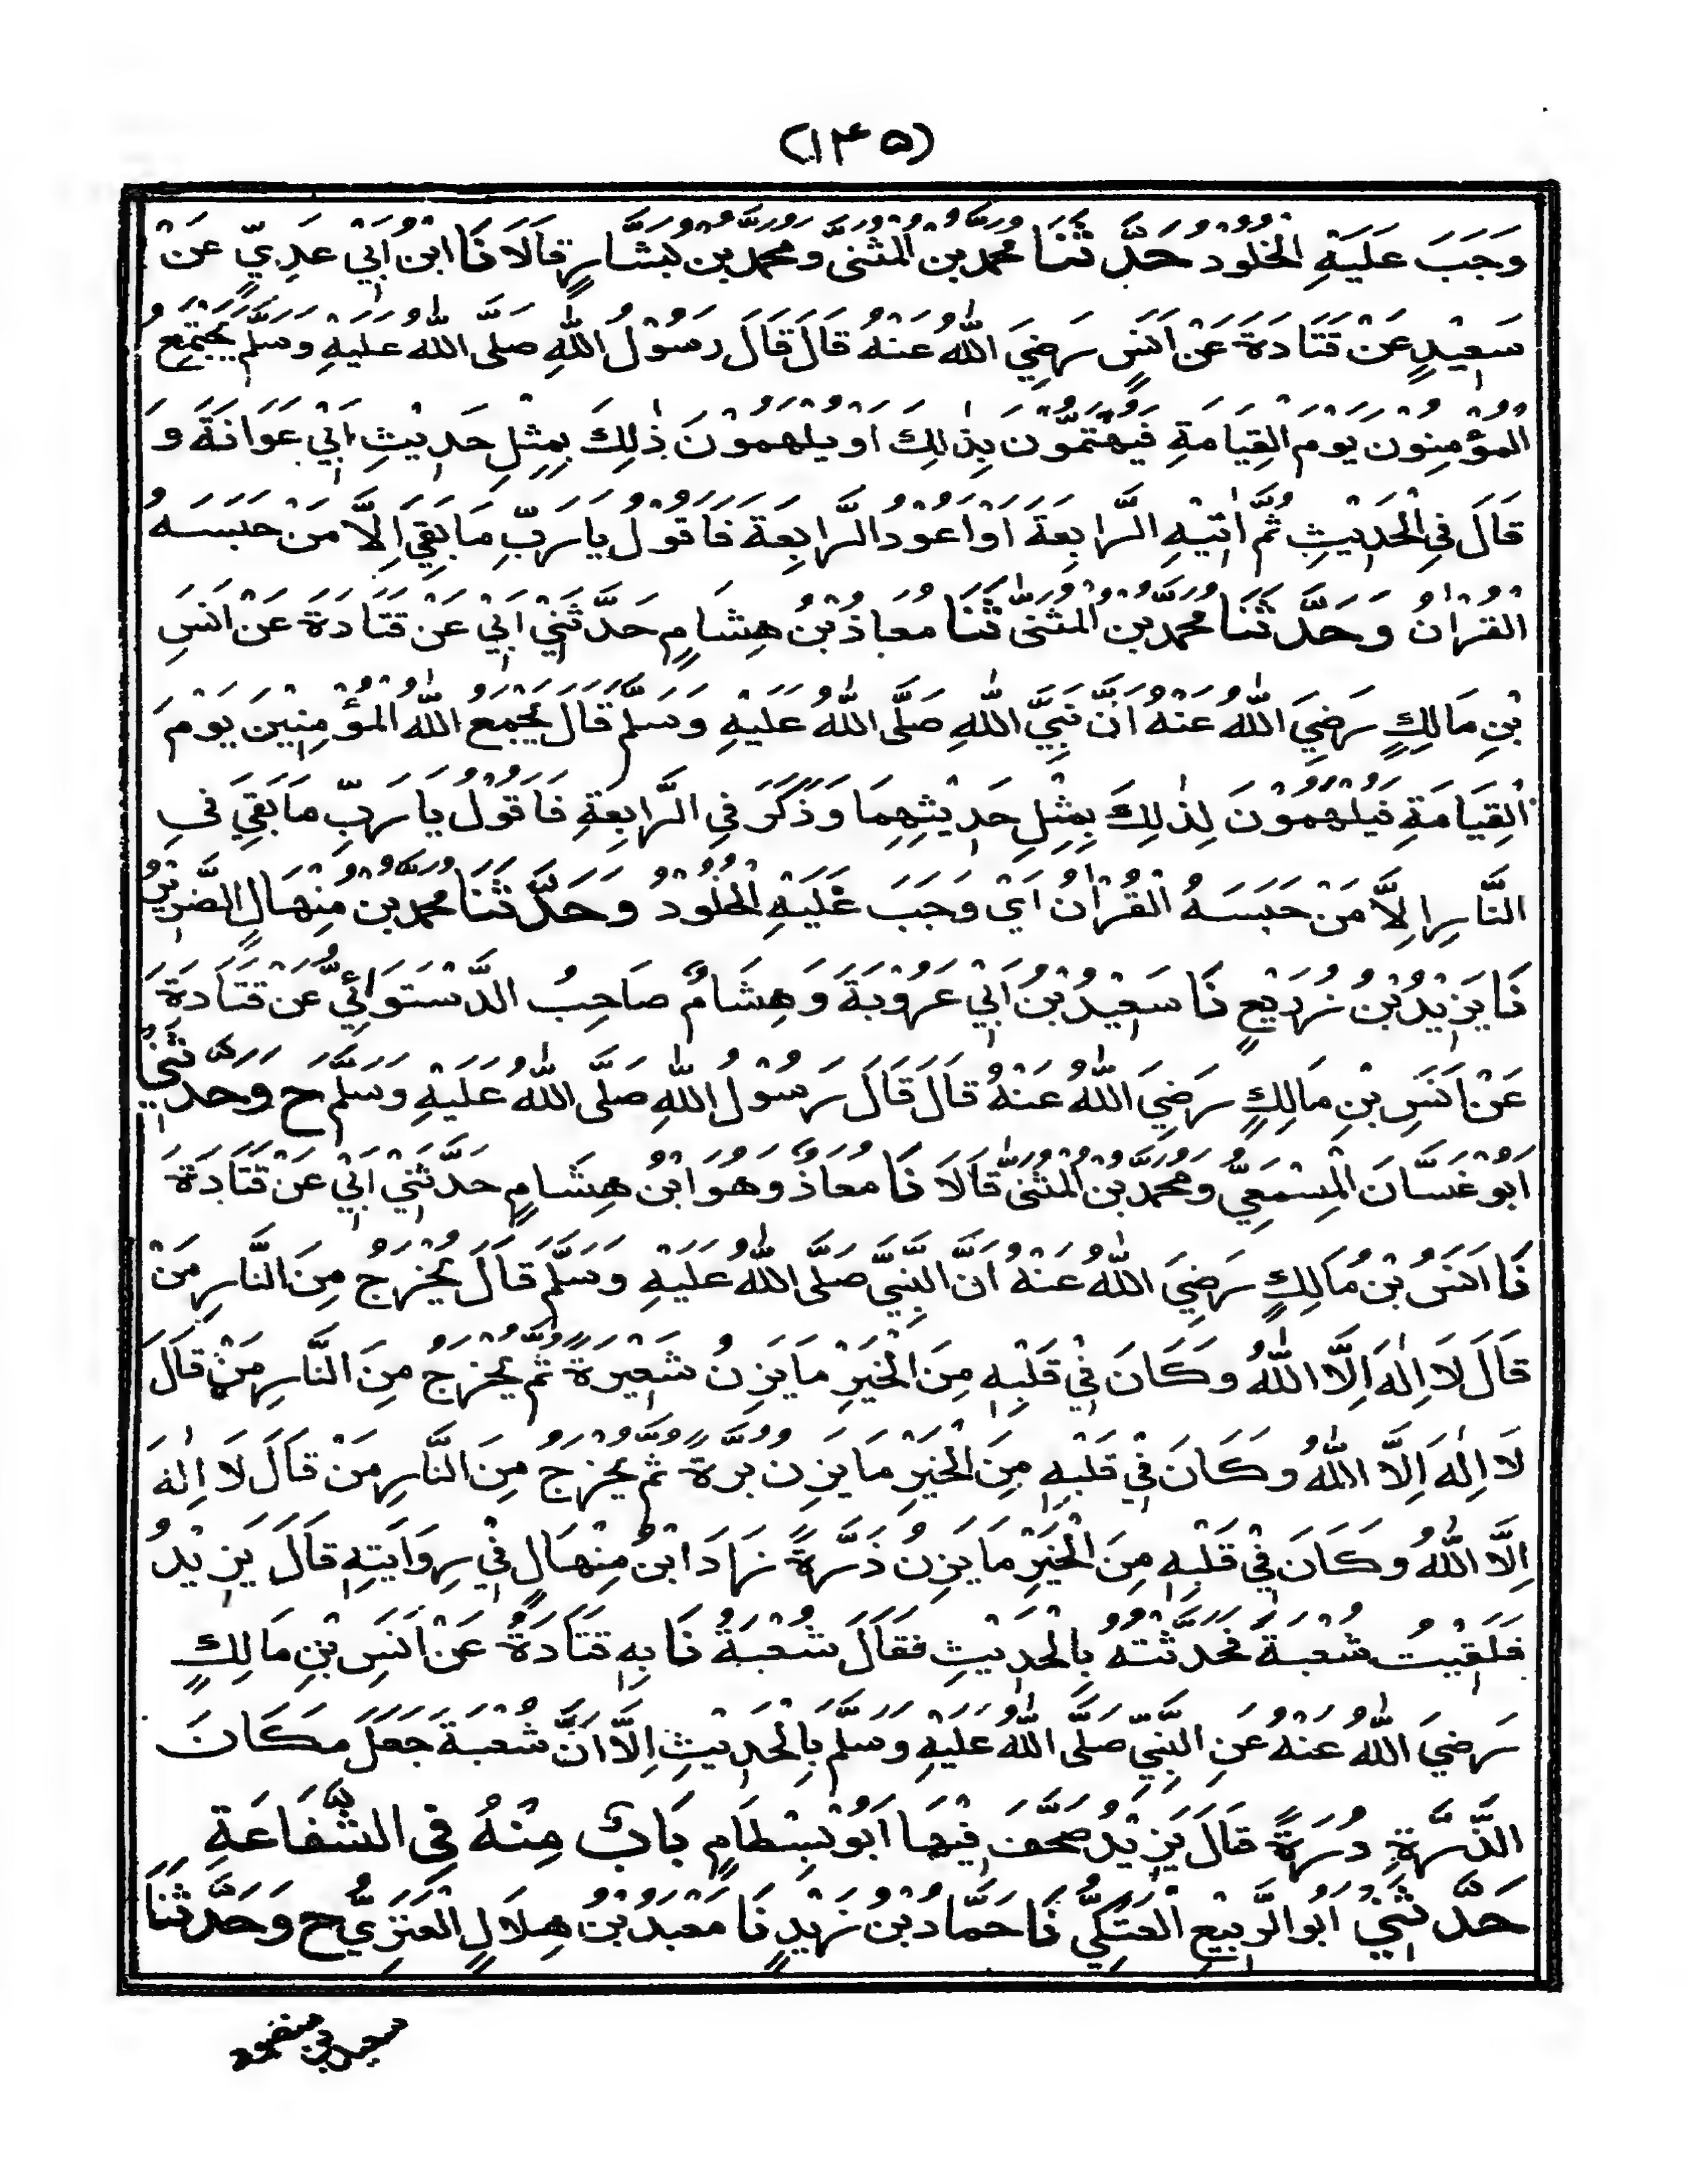 (۱۴۵)
وَجَبَ عَلَيْهِ الْخُلُوْدُ حَدَّثَنَا مُحَمَّدُ بْنُ الْمُثَنّٰى وَمُحَمَّدُ بْنُ بَشَّارٍ قَالَا نَا ابْنُ اَبِيْ عَدِيٍّ عَنْ
سَعِيْدٍ عَنْ قَتَادَةَ عَنْ اَنَسٍ رَضِيَ اللّٰهُ عَنْهُ قَالَ قَالَ رَسُوْلُ اللّٰهِ صَلَّى اللّٰهُ عَلَيْهِ وَسَلَّمَ يَجْتَمِعُ
الْمُؤْمِنُوْنَ يَوْمَ الْقِيَامَةِ فَيَهْتَمُّوْنَ بِذٰلِكَ اَوْ يُلْهَمُوْنَ ذٰلِكَ بِمِثْلِ حَدِيْثِ اَبِيْ عَوَانَةَ وَ
قَالَ فِى الْحَدِيْثِ ثُمَّ اٰتِيْهِ الرَّابِعَةَ اَوْ اَعُوْدُ الرَّابِعَةَ فَاَقُوْلُ يَا رَبِّ مَا بَقِيَ اِلَّا مَنْ حَبَسَهُ
الْقُرْاٰنُ وَحَدَّثَنَا مُحَمَّدُ بْنُ الْمُثَنّٰى ثَنَا مُعَاذُ بْنُ هِشَامٍ حَدَّثَنِيْ اَبِيْ عَنْ قَتَادَةَ عَنْ اَنَسِ
بْنِ مَالِكٍ رَضِيَ اللّٰهُ عَنْهُ اَنَّ نَبِيَّ اللّٰهِ صَلَّى اللّٰهُ عَلَيْهِ وَسَلَّمَ قَالَ يَجْمَعُ اللّٰهُ الْمُؤْمِنِيْنَ يَوْمَ
الْقِيَامَةِ فَيُلْهَمُوْنَ لِذٰلِكَ بِمِثْلِ حَدِيْثِهِمَا وَذَكَرَ فِي الرَّابِعَةِ فَاَقُوْلُ يَا رَبِّ مَا بَقِيَ فِي
النَّارِ اِلَّا مَنْ حَبَسَهُ الْقُرْاٰنُ اَيْ وَجَبَ عَلَيْهِ الْخُلُوْدُ وَحَدَّثَنَا مُحَمَّدُ بْنُ مِنْهَالٍ الضَّرِيْرُ
نَا يَزِيْدُ بْنُ زُرَيْعٍ نَا سَعِيْدُ بْنُ اَبِيْ عَرُوْبَةَ وَهِشَامٌ صَاحِبُ الدَّسْتَوَائِيِّ عَنْ قَتَادَةَ
عَنْ اَنَسِ بْنِ مَالِكٍ رَضِيَ اللّٰهُ عَنْهُ قَالَ قَالَ رَسُوْلُ اللّٰهِ صَلَّى اللّٰهُ عَلَيْهِ وَسَلَّمَ ح وَحَدَّثَنِيْ
اَبُوْ غَسَّانَ الْمِسْمَعِيُّ وَمُحَمَّدُ بْنُ الْمُثَنّٰى قَالَا نَا مُعَاذٌ وَهُوَ ابْنُ هِشَامٍ حَدَّثَنِيْ اَبِيْ عَنْ قَتَادَةَ
نَا اَنَسُ بْنُ مَالِكٍ رَضِيَ اللّٰهُ عَنْهُ اَنَّ النَّبِيَّ صَلَّى اللّٰهُ عَلَيْهِ وَسَلَّمَ قَالَ يُخْرَجُ مِنَ النَّارِ مَنْ
قَالَ لَا اِلٰهَ اِلَّا اللّٰهُ وَكَانَ فِيْ قَلْبِهٖ مِنَ الْخَيْرِ مَا يَزِنُ شَعِيْرَةً ثُمَّ يُخْرَجُ مِنَ النَّارِ مَنْ قَالَ
لَا اِلٰهَ اِلَّا اللّٰهُ وَكَانَ فِيْ قَلْبِهٖ مِنَ الْخَيْرِ مَا يَزِنُ بُرَّةً ثُمَّ يُخْرَجُ مِنَ النَّارِ مَنْ قَالَ لَا اِلٰهَ
اِلَّا اللّٰهُ وَكَانَ فِيْ قَلْبِهٖ مِنَ الْخَيْرِ مَا يَزِنُ ذَرَّةً زَادَ ابْنُ مِنْهَالٍ فِيْ رِوَايَتِهٖ قَالَ يَزِيْدُ
فَلَقِيْتُ شُعْبَةَ فَحَدَّثْتُهُ بِالْحَدِيْثِ فَقَالَ شُعْبَةُ نَا بِهٖ قَتَادَةُ عَنْ اَنَسِ بْنِ مَالِكٍ
رَضِيَ اللّٰهُ عَنْهُ عَنِ النَّبِيِّ صَلَّى اللّٰهُ عَلَيْهِ وَسَلَّمَ بِالْحَدِيْثِ اِلَّا اَنَّ شُعْبَةَ جَعَلَ مَكَانَ
الذَّرَّةِ ذُرَةً قَالَ يَزِيْدُ صَحَّفَ فِيْهَا اَبُوْ بِسْطَامٍ بَابٌ مِنْهُ فِى الشَّفَاعَةِ
حَدَّثَنِيْ اَبُو الرَّبِيْعِ الْعَتَكِيُّ نَا حَمَّادُ بْنُ زَيْدٍ نَا مَعْبَدُ بْنُ هِلَالٍ الْعَنَزِيُّ ح وَحَدَّثَنَا